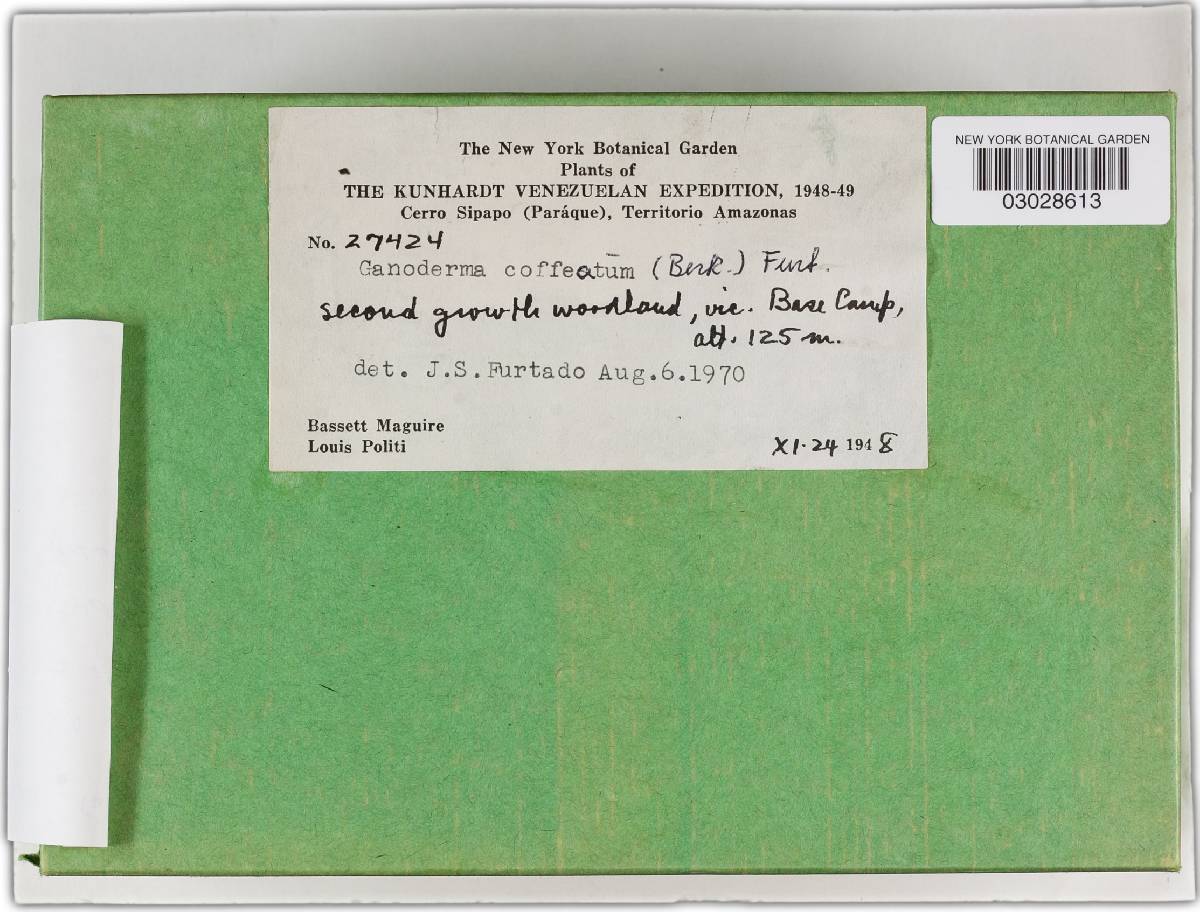 The New York Botanical Garden
Plants of
THE KUNHARDT VENEZUELAN EXPEDITION, 1948-49
Cerro Sipapo (Paráque), Territorio Amazonas
No. 27424
Ganoderma coffeatum (Berk.) Furt.
second growth woodland, vic. Base Camp,
alt. 125 m.
det. J.S.Furtado Aug.6.1970
Bassett Maguire
Louis Politi
XI-24 1948
NEW YORK BOTANICAL GARDEN
03028613